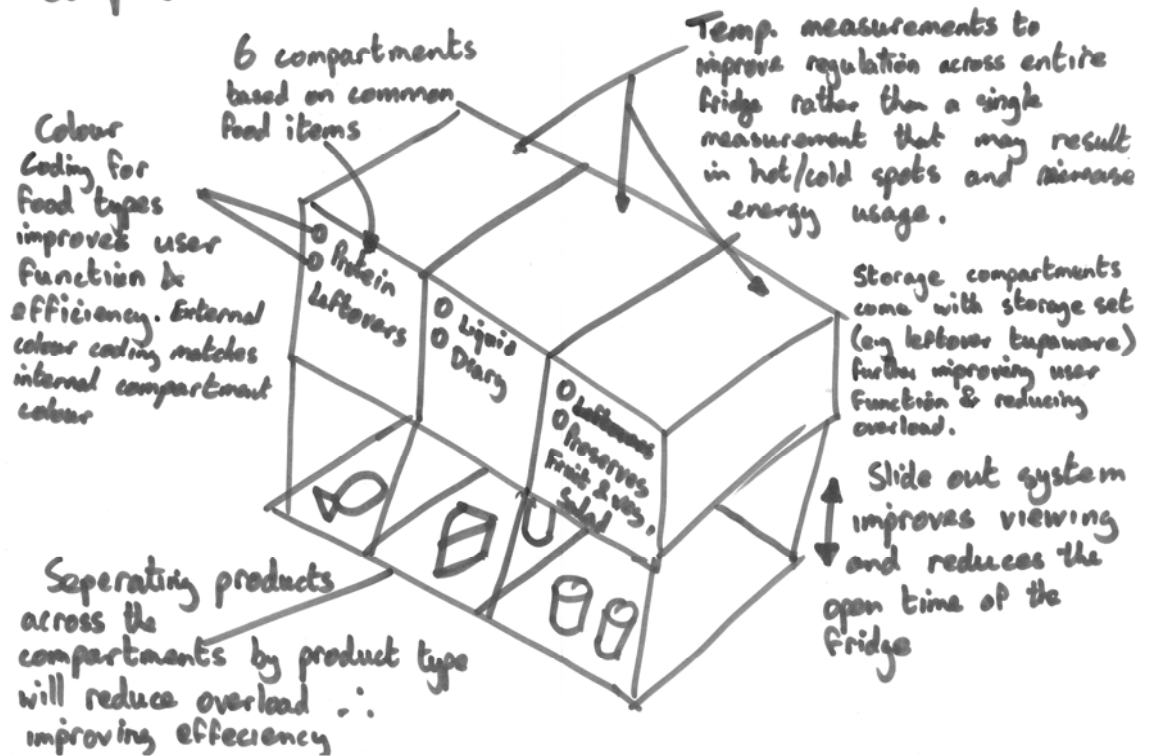 6 compartments
based on common
food items
Temp. measurements to
improve regulation across entire
fridge rather than a single
measurement that may result
in hot/cold spots and increase
energy usage.
Colour
Coding for
food types
improves user
function &
efficiency. External
colour coding matches
internal compartment
colour
Protein
Leftovers
Liquid
Diary
Preserves
Fruit & veg,
Salad
Storage compartments
come with storage set
(e.g leftover tupaware)
further improving user
function & reducing
overload.
Slide out system
improves viewing
and reduces the
open time of the
fridge
Seperating products
across the
compartments by product type
will reduce overload ∴
improving effeciency